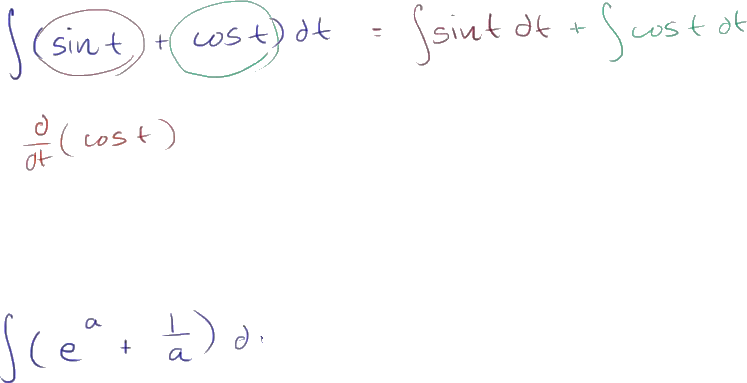 ∫(sin t + cos t) dt = ∫sin t dt + ∫cos t dt
d/dt (cos t)
∫(e^a + 1/a) d